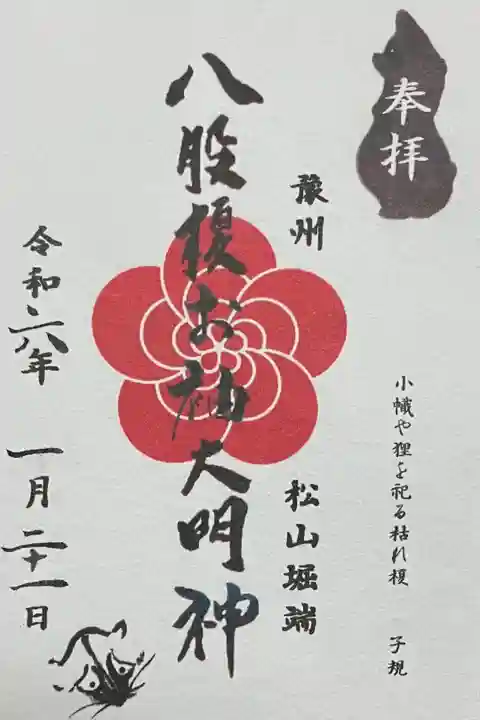 奉拝
豫州
松山堀端
小幟や狸を祀る枯れ榎
子規
八股榎お袖大明神
令和六年 一月二十一日